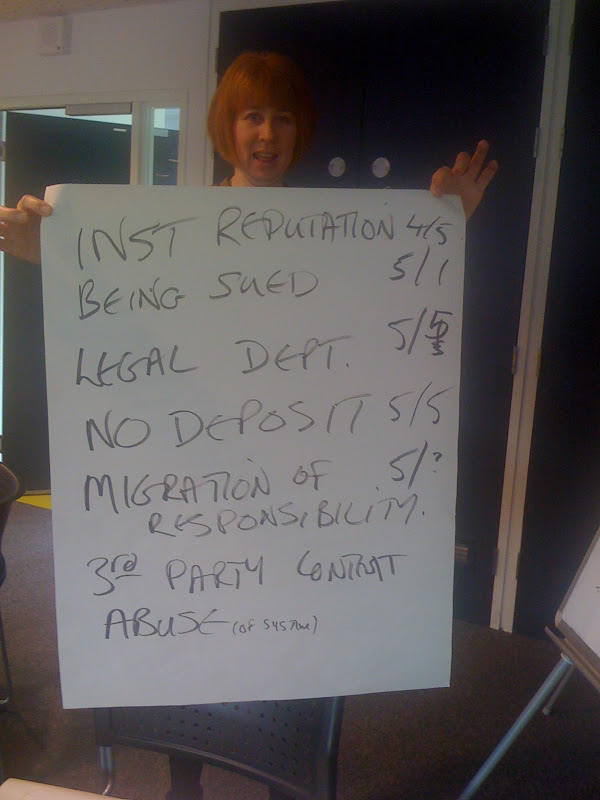 INST REPUTATION 4/5
BEING SUED 5/1
LEGAL DEPT. 5/5
NO DEPOSIT 5/5
MIGRATION OF 5/?
RESPONSIBILITY.
3rd PARTY CONTRAT
ABUSE (OF SYSTEM)